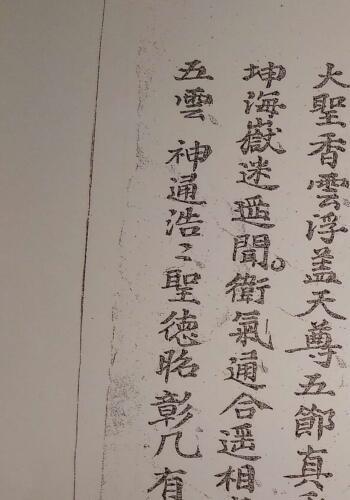 大聖香雲浮盖天尊五節真
坤海嶽迷遥聞。衛氣通合遥相
五雲 神通浩〻聖徳昭彰凢有